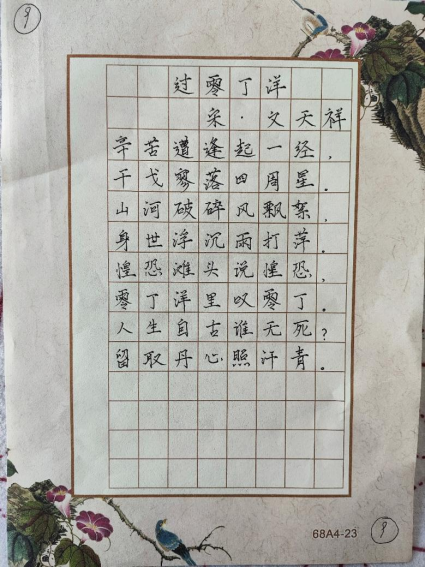 9
过零丁洋
宋·文天祥
辛苦遭逢起一经,
干戈寥落四周星.
山河破碎风飘絮,
身世浮沉雨打萍.
惶恐滩头说惶恐,
零丁洋里叹零丁.
人生自古谁无死?
留取丹心照汗青.
68A4-23
9